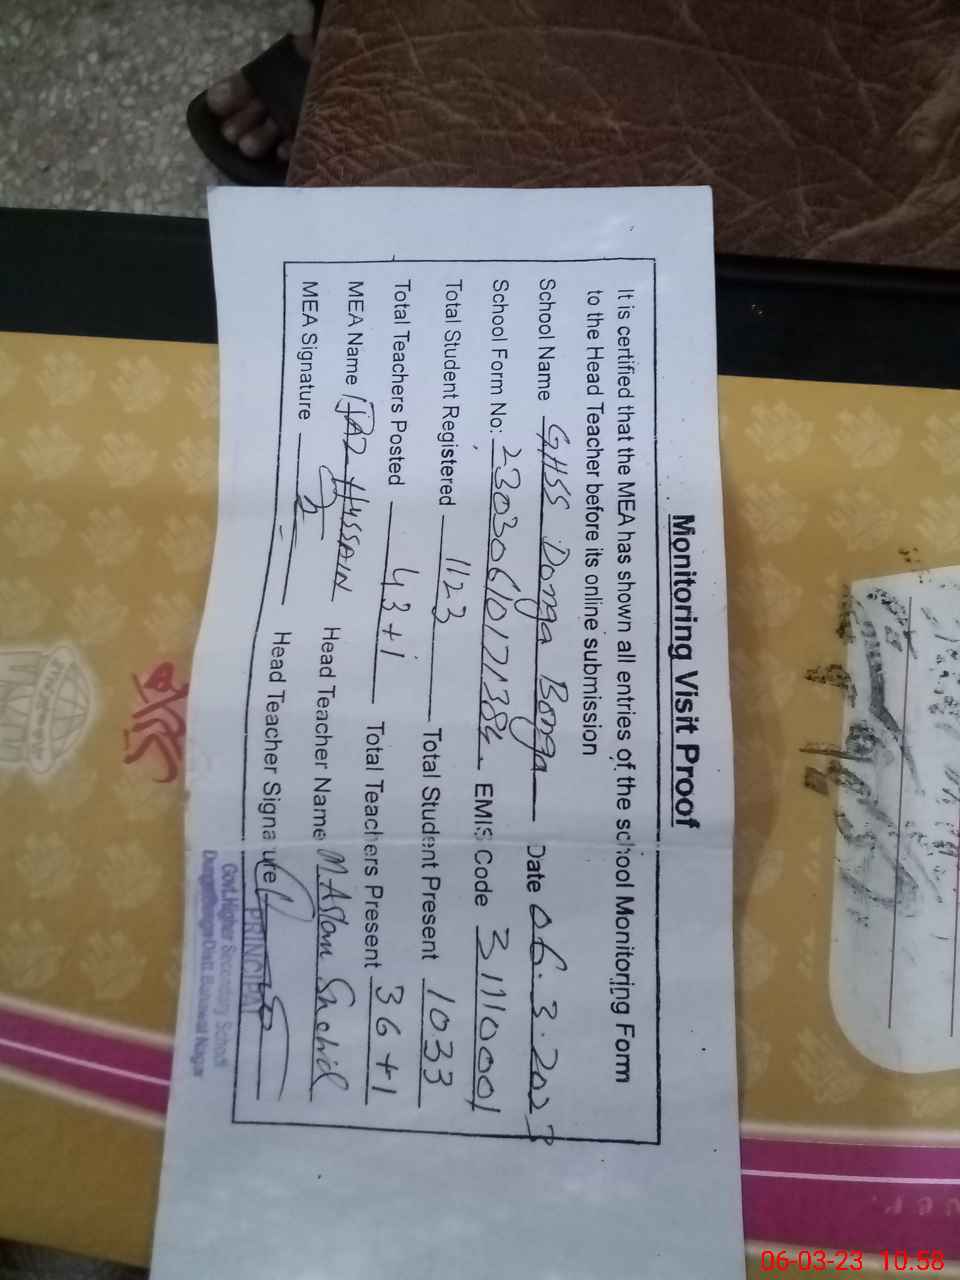 Monitoring Visit Proof
It is certified that the MEA has shown all entries of the school Monitoring Form
to the Head Teacher before its online submission
School Name GHSS Donga Bonga Date 06.3.2023
School Form No: 230306101717384 EMIS Code 31110001
Total Student Registered 1123 Total Student Present 1033
Total Teachers Posted 43+1 Total Teachers Present 36+1
MEA Name IJAZ HUSSAIN Head Teacher Name M. Aslam Shahid
MEA Signature Head Teacher Signature
PRINCIPAL
Govt. Higher Secondary School
Donga Bonga Distt. Bahawal Nagar
06-03-23 10.58